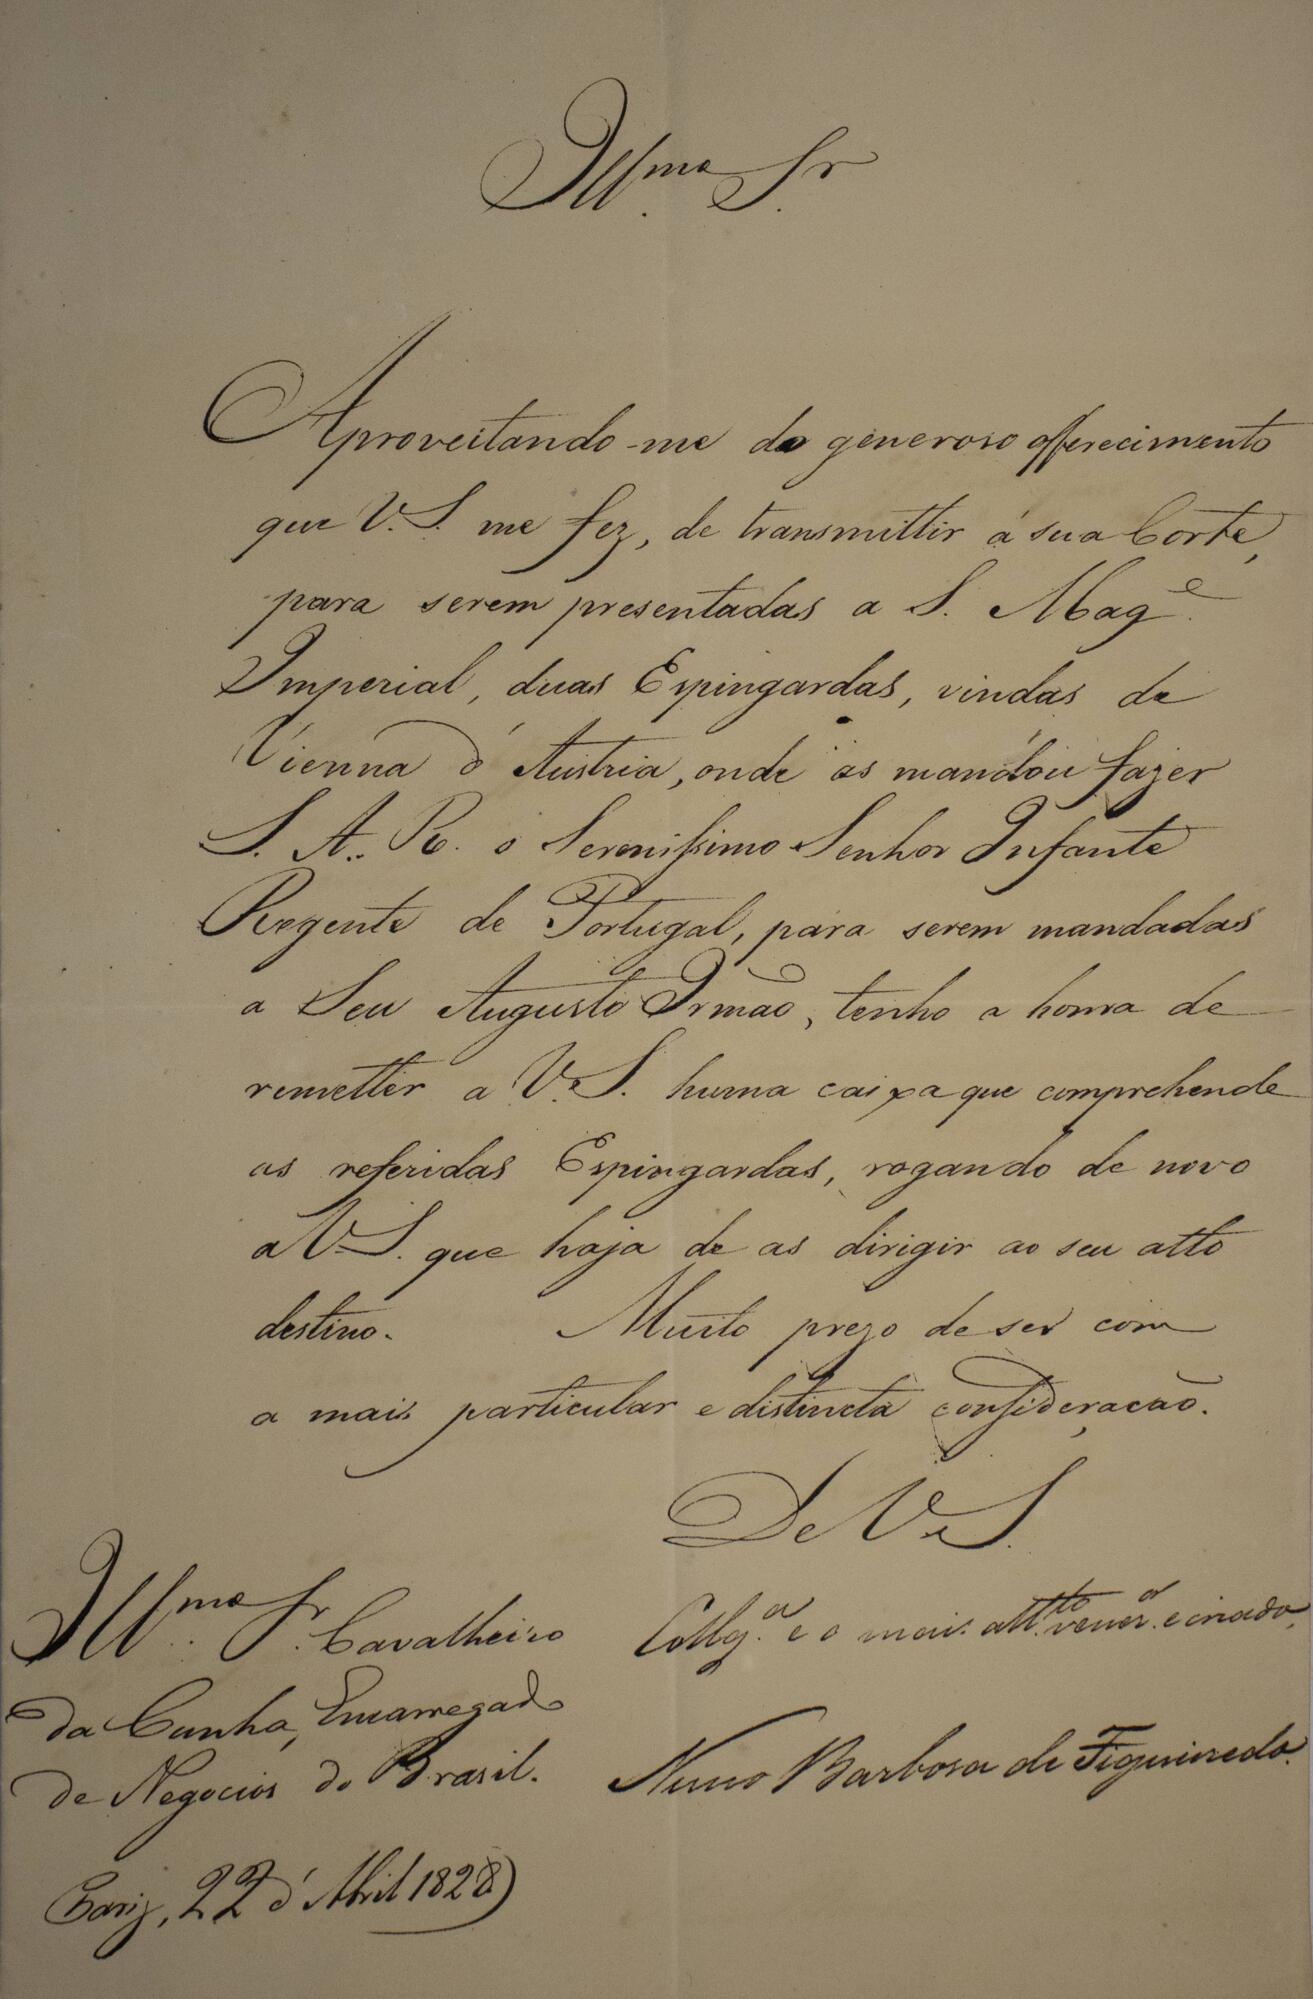 Ill.mo Sr.
Aproveitando-me do generoso offerecimento
que V. S. me fez, de transmittir á sua Corte,
para serem presentadas a S. Mag.e
Imperial, duas Espingardas, vindas de
Vienna d'Austria, onde as mandou fazer
S. A. R. o Serenissimo Senhor Infante
Regente de Portugal, para serem mandadas
a Seu Augusto Irmão, tenho a honra de
remetter a V. S. huma caixa que comprehende
as referidas Espingardas, rogando de novo
a V. S. que haja de as dirigir ao seu alto
destino. Muito prezo de ser com
a mais particular e distincta consideração.
De V. S.
Ill.mo Sr. Cavalheiro
da Cunha, Encarregado
de Negocios do Brasil.
Colleg.a e o mais att.to vener.or e criado,
Nuno Barbosa de Figueiredo.
Pariz, 22 d'Abril 1828